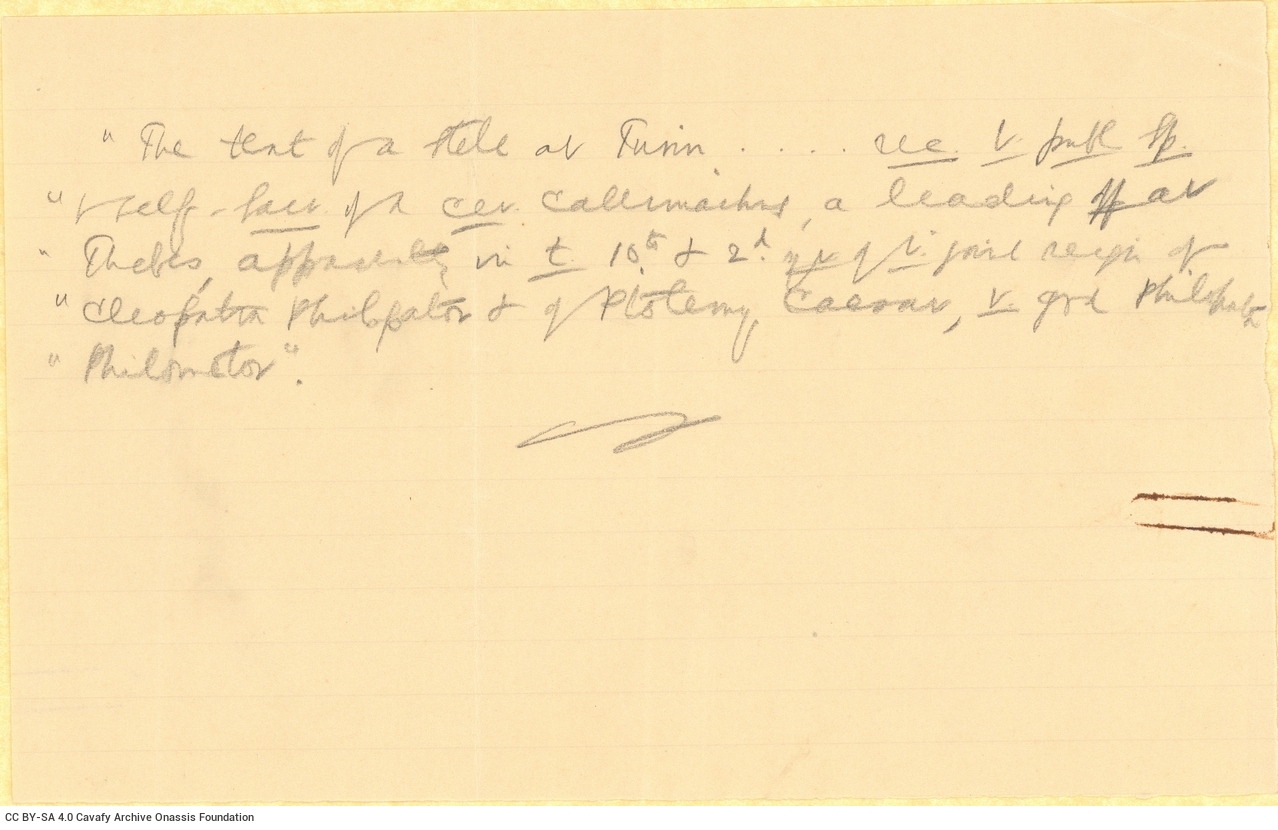 " The text of a stele at Turin . . . . rec. t. publ. sp.
" & self-sacr. of a cer. Callimachus, a leading off. at
" Thebes, apparently in t. 10th & 2d yr of t. joint reign of
" Cleopatra Philopator & of Ptolemy Caesar, t. god Philopator
" Philometor".
CC BY-SA 4.0 Cavafy Archive Onassis Foundation